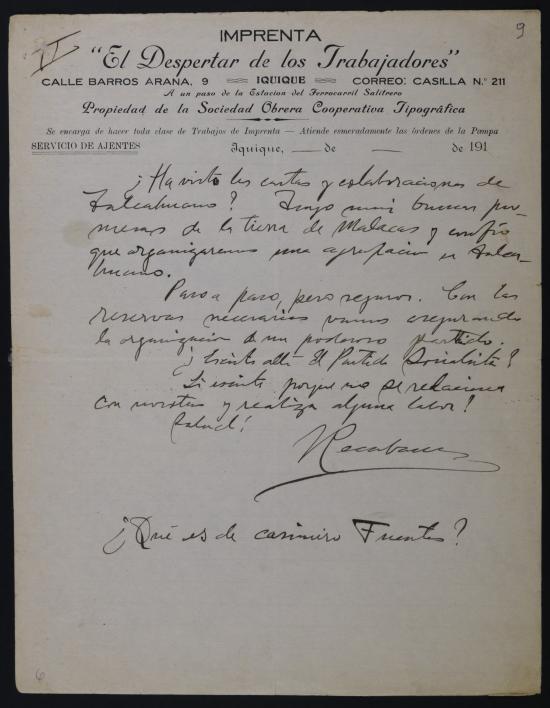 II
9
IMPRENTA
"El Despertar de los Trabajadores"
CALLE BARROS ARANA, 9 IQUIQUE CORREO: CASILLA N.º 211
A un paso de la Estacion del Ferrocarril Salitrero
Propiedad de la Sociedad Obrera Cooperativa Tipográfica
Se encarga de hacer toda clase de Trabajos de Imprenta — Atiende esmeradamente las órdenes de la Pampa
SERVICIO DE AJENTES
Iquique, de de 191
¿Ha visto las cartas y colaboraciones de
Talcahuano? Tengo mui buenas pro-
mesas de la tierra de Malacas y confío
que organizaremos una agrupacion en Talca-
huano.
Paso a paso, pero seguros. Con las
reservas necesarias vamos asegurando
la organización de un poderoso partido.
¿Existe allá El Partido Socialista?
Si existe porque no se relaciona
con nosotros y realiza alguna labor?
Salud!
Recabarren
¿Qué es de Casimiro Fuentes?
6